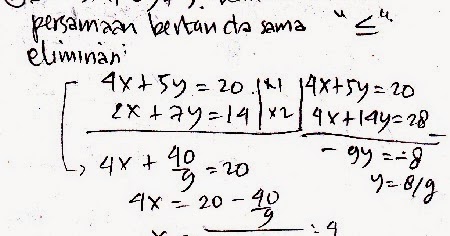 persamaan bertanda sama "≤"
eliminasi:
4x + 5y = 20 | x1 | 4x + 5y = 20
2x + 7y = 14 | x2 | 4x + 14y = 28 -
- 9y = -8
y = 8/9
4x + 40/9 = 20
4x = 20 - 40/9